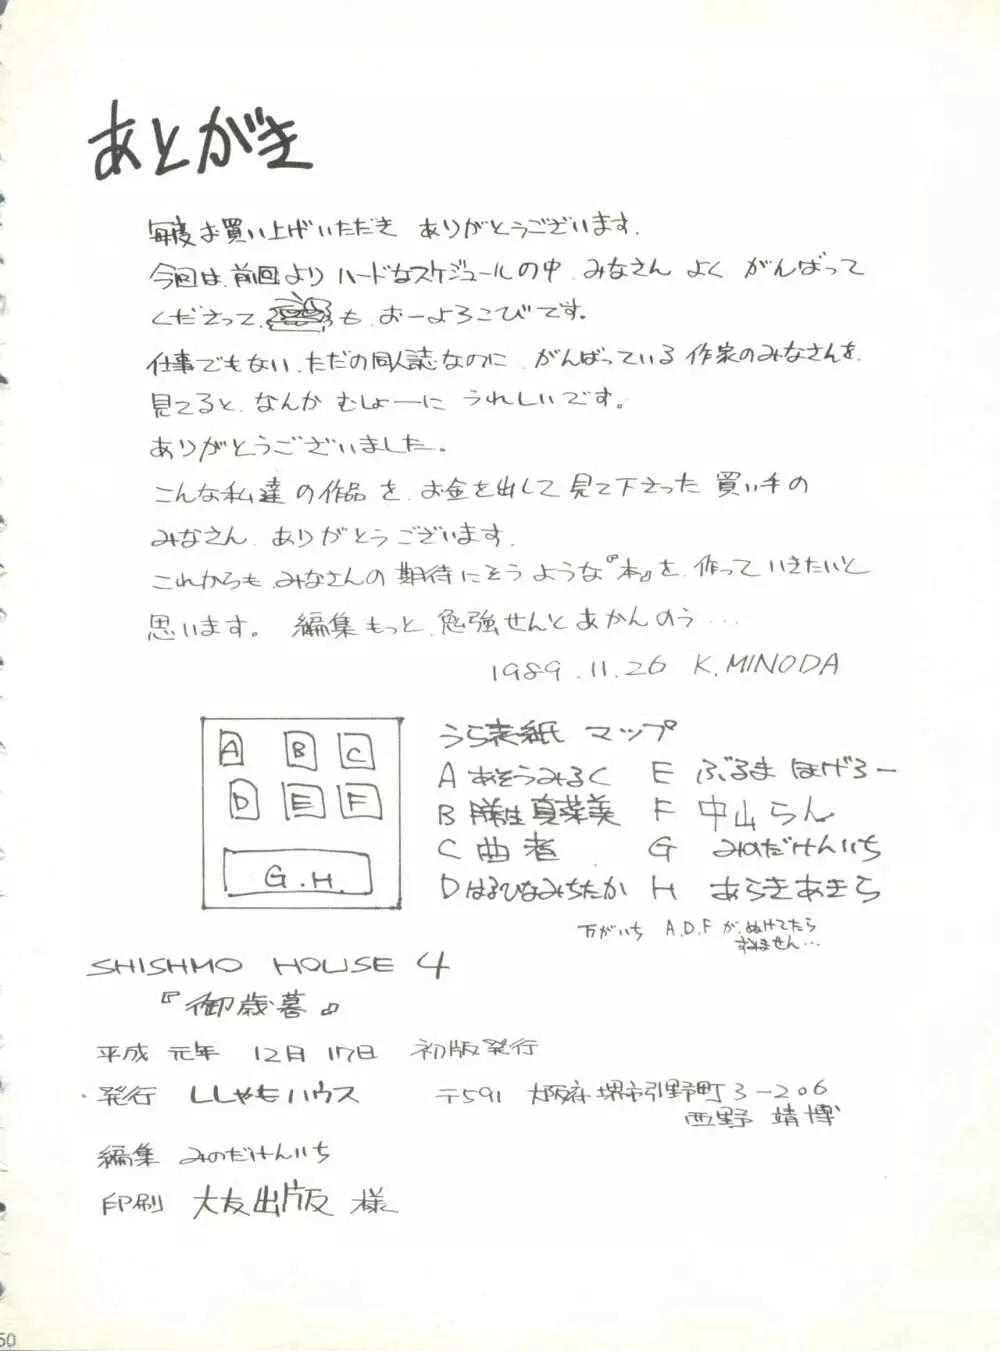 あとがき
毎度お買い上げいただき ありがとうございます.
今回は、前回より ハードなスケジュールの中、みなさん よく がんばって
くださって、も、おーよろこびです。
仕事でもない、ただの同人誌なのに、がんばっている 作家のみなさんを、
見てると、なんか むしょーに うれしいです。
ありがとうございました。
こんな私達の作品を、お金を出して見て下さった 買い手の
みなさん、ありがとうございます.
これからも、みなさんの期待にそうような『本』を、作っていきたいと
思います。 編集もっと、勉強せんとあかんのう…
1989.11.26 K.MINODA
A B C
D E F
G.H.
うら表紙 マップ
A あそうみるく E ぶるま ほげろー
B 真菜美 F 中山らん
C 曲者 G みのだけんいち
D はるひなみちたか H あらきあきら
万がいち A.D.F が、ぬけてたら
すみません…
SHISHMO HOUSE 4
『御歳暮』
平成 元年 12月 17日 初版発行
・発行 ししゃもハウス 〒591 大阪府堺市引野町3-206
西野 靖博
編集 みのだけんいち
印刷 大友出版 様
50